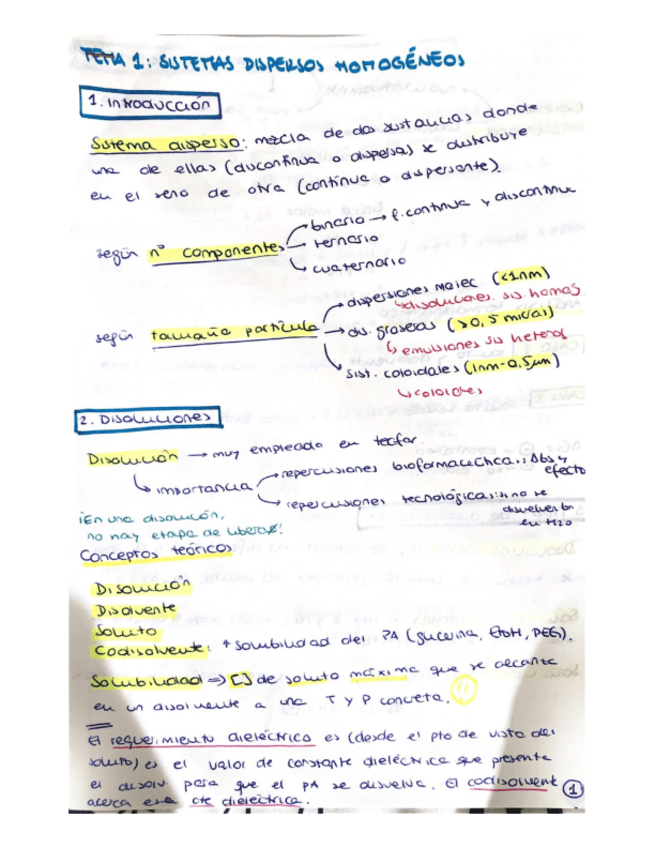 TEMA 1: SISTEMAS DISPERSOS HOMOGÉNEOS
1. Introducción
Sistema disperso: mezcla de dos sustancias donde
una de ellas (discontinua o dispersa) se distribuye
en el seno de otra (continua o dispersante).
según nº componentes
binario → f. continua y discontinua
ternario
cuaternario
según tamaño partícula
dispersiones molec (<1nm)
↳ disoluciones, sis. homog
dis. groseras (>0,5 micras)
↳ emulsiones sis heterog
sist. coloidales (1nm-0,5µm)
↳ coloides
2. Disoluciones
Disolución → muy empleada en tecfar
↳ importancia
repercusiones biofarmacéuticas: Abs y
efecto
repercusiones tecnológicas: si no se
disuelve bn
en H2O
¡En una disolución,
no hay etapa de liberac!
Conceptos teóricos
Disolución
Disolvente
Soluto
Codisolvente: ↑ solubilidad del PA (glicerina, EtOH, PEG).
Solubilidad ⇒ [ ] de soluto máxima que se alcanza
en un disolvente a una T y P concreta.
El requerimiento dieléctrico es (desde el pto de vista del
soluto) es el valor de constante dieléctrica que presente
el disolv para que el PA se disuelva. El codisolvent
acerca esa cte dieléctrica.
1